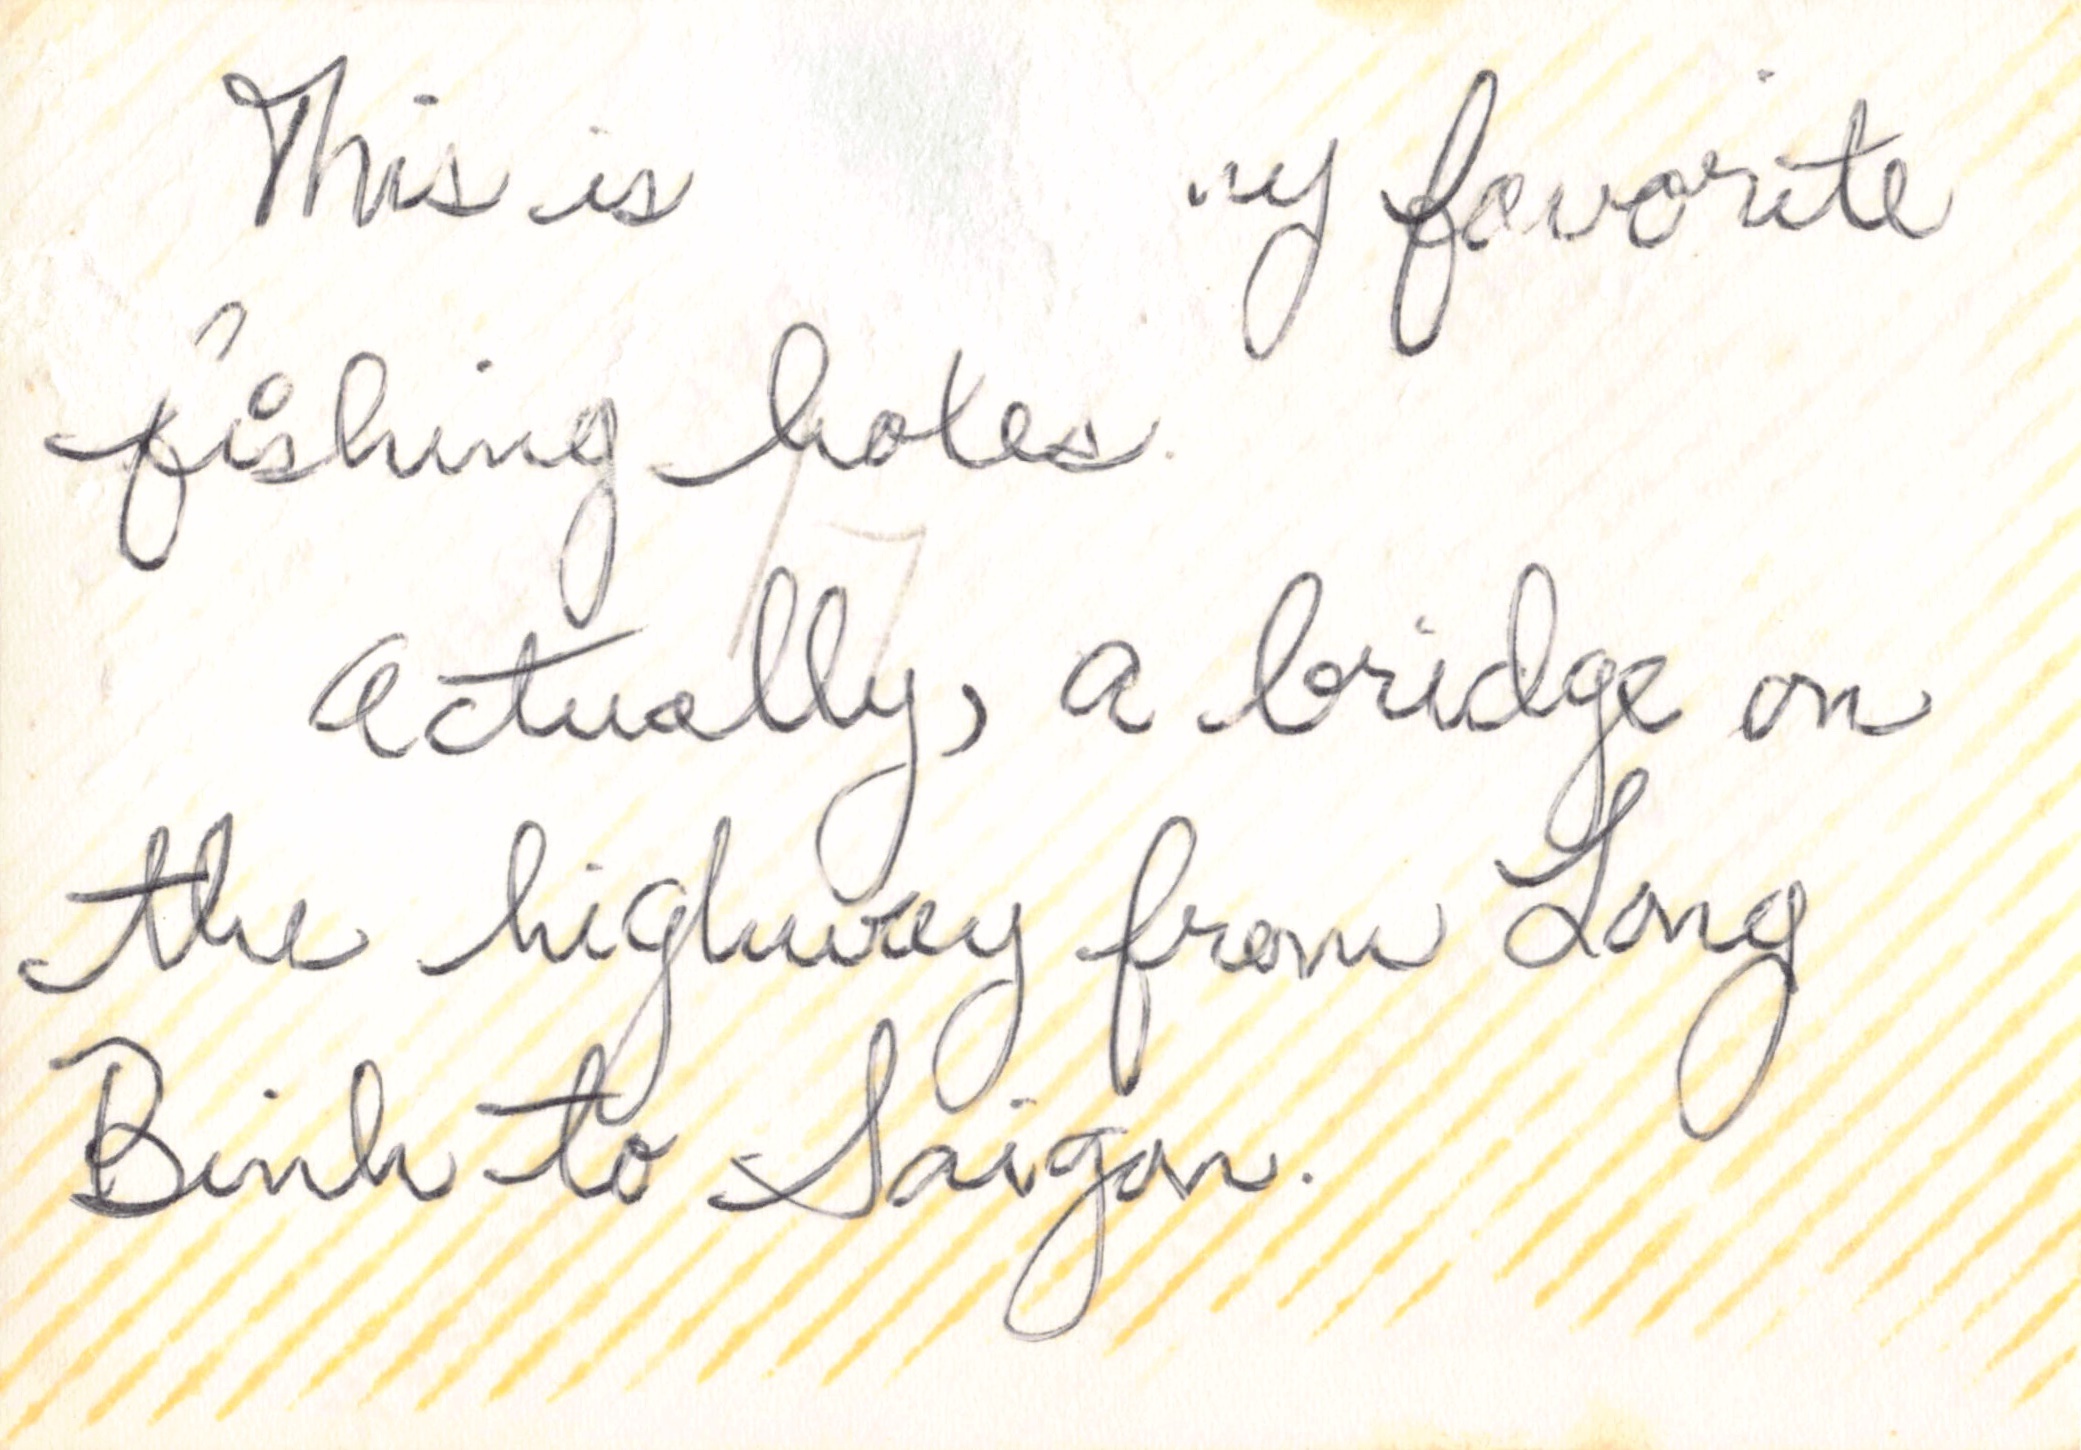 This is my favorite
fishing holes.
Actually, a bridge on
the highway from Long
Binh to Saigon.